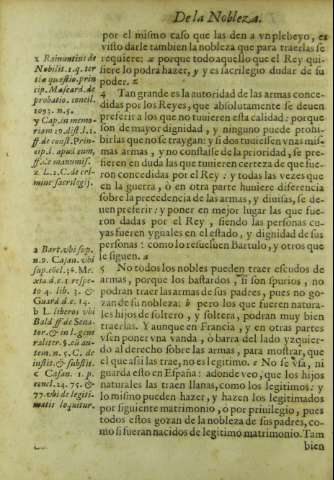 De la Nobleza.
por el mismo caso que las den a vn plebeyo, es
visto darle tambien la nobleza que para traerlas se
requiere: x porque todo aquello que el Rey qui-
siere lo podra hazer, y es sacrilegio dudar de su
poder. z
4 Tan grande es la autoridad de las armas conce-
didas por los Reyes, que absolutamente se deuen
preferir a los que no tuuieren esta calidad: porque
son de mayor dignidad, y ninguno puede prohi-
birlas que no se traygan: y si dos truxessen vnas mis-
mas armas, y no constasse de la prioridad, se pre-
fieren en duda las que tuuieren certeza de que fue-
ron concedidas por el Rey: y todas las vezes que
en la guerra, ò en otra parte huuiere diferencia
sobre la precedencia de las armas, y diuisas, se de-
uen preferir: y poner en mejor lugar las que fue-
ron dadas por el Rey, siendo las personas cu-
yas fueren yguales en el estado, y dignidad de sus
personas: como lo resueluen Bartulo, y otros que
le siguen. a
5 No todos los nobles pueden traer escudos de
armas, porque los bastardos, si son spurios, no
podran traer las armas de sus padres, pues no go-
zan de su nobleza: b pero los que fueren natura-
les hijos de soltero, y soltera, podran muy bien
traerlas. Y aunque en Francia, y en otras partes
vsen poner vna vanda, ò barra del lado yzquier-
do al derecho sobre las armas, para mostrar, que
el que assi las trae, no es legitimo. c No se vsa, ni
guarda esto en España: adonde veo, que los hijos
naturales las traen llanas, como los legitimos: y
lo mismo pueden hazer, y hazen los legitimados
por siguiente matrimonio, ò por priuilegio, pues
todos estos gozan de la nobleza de sus padres, co-
mo si fueran nacidos de legitimo matrimonio. Tam
bien
x Raimontius de
Nobilit. 1. q. ter
tia quæstio. prin
cip. Mascard. de
probatio. concl.
1093. n. 5.
y Cap. in memo-
riam 19. dist. l. 1.
ff de const. Prin-
cip. l. apud eum,
ff. de manumis.
z L. 2. C. de cri-
mine sacrilegij.
a Bart. vbi sup.
n. 9. Cajan. vbi
sup.